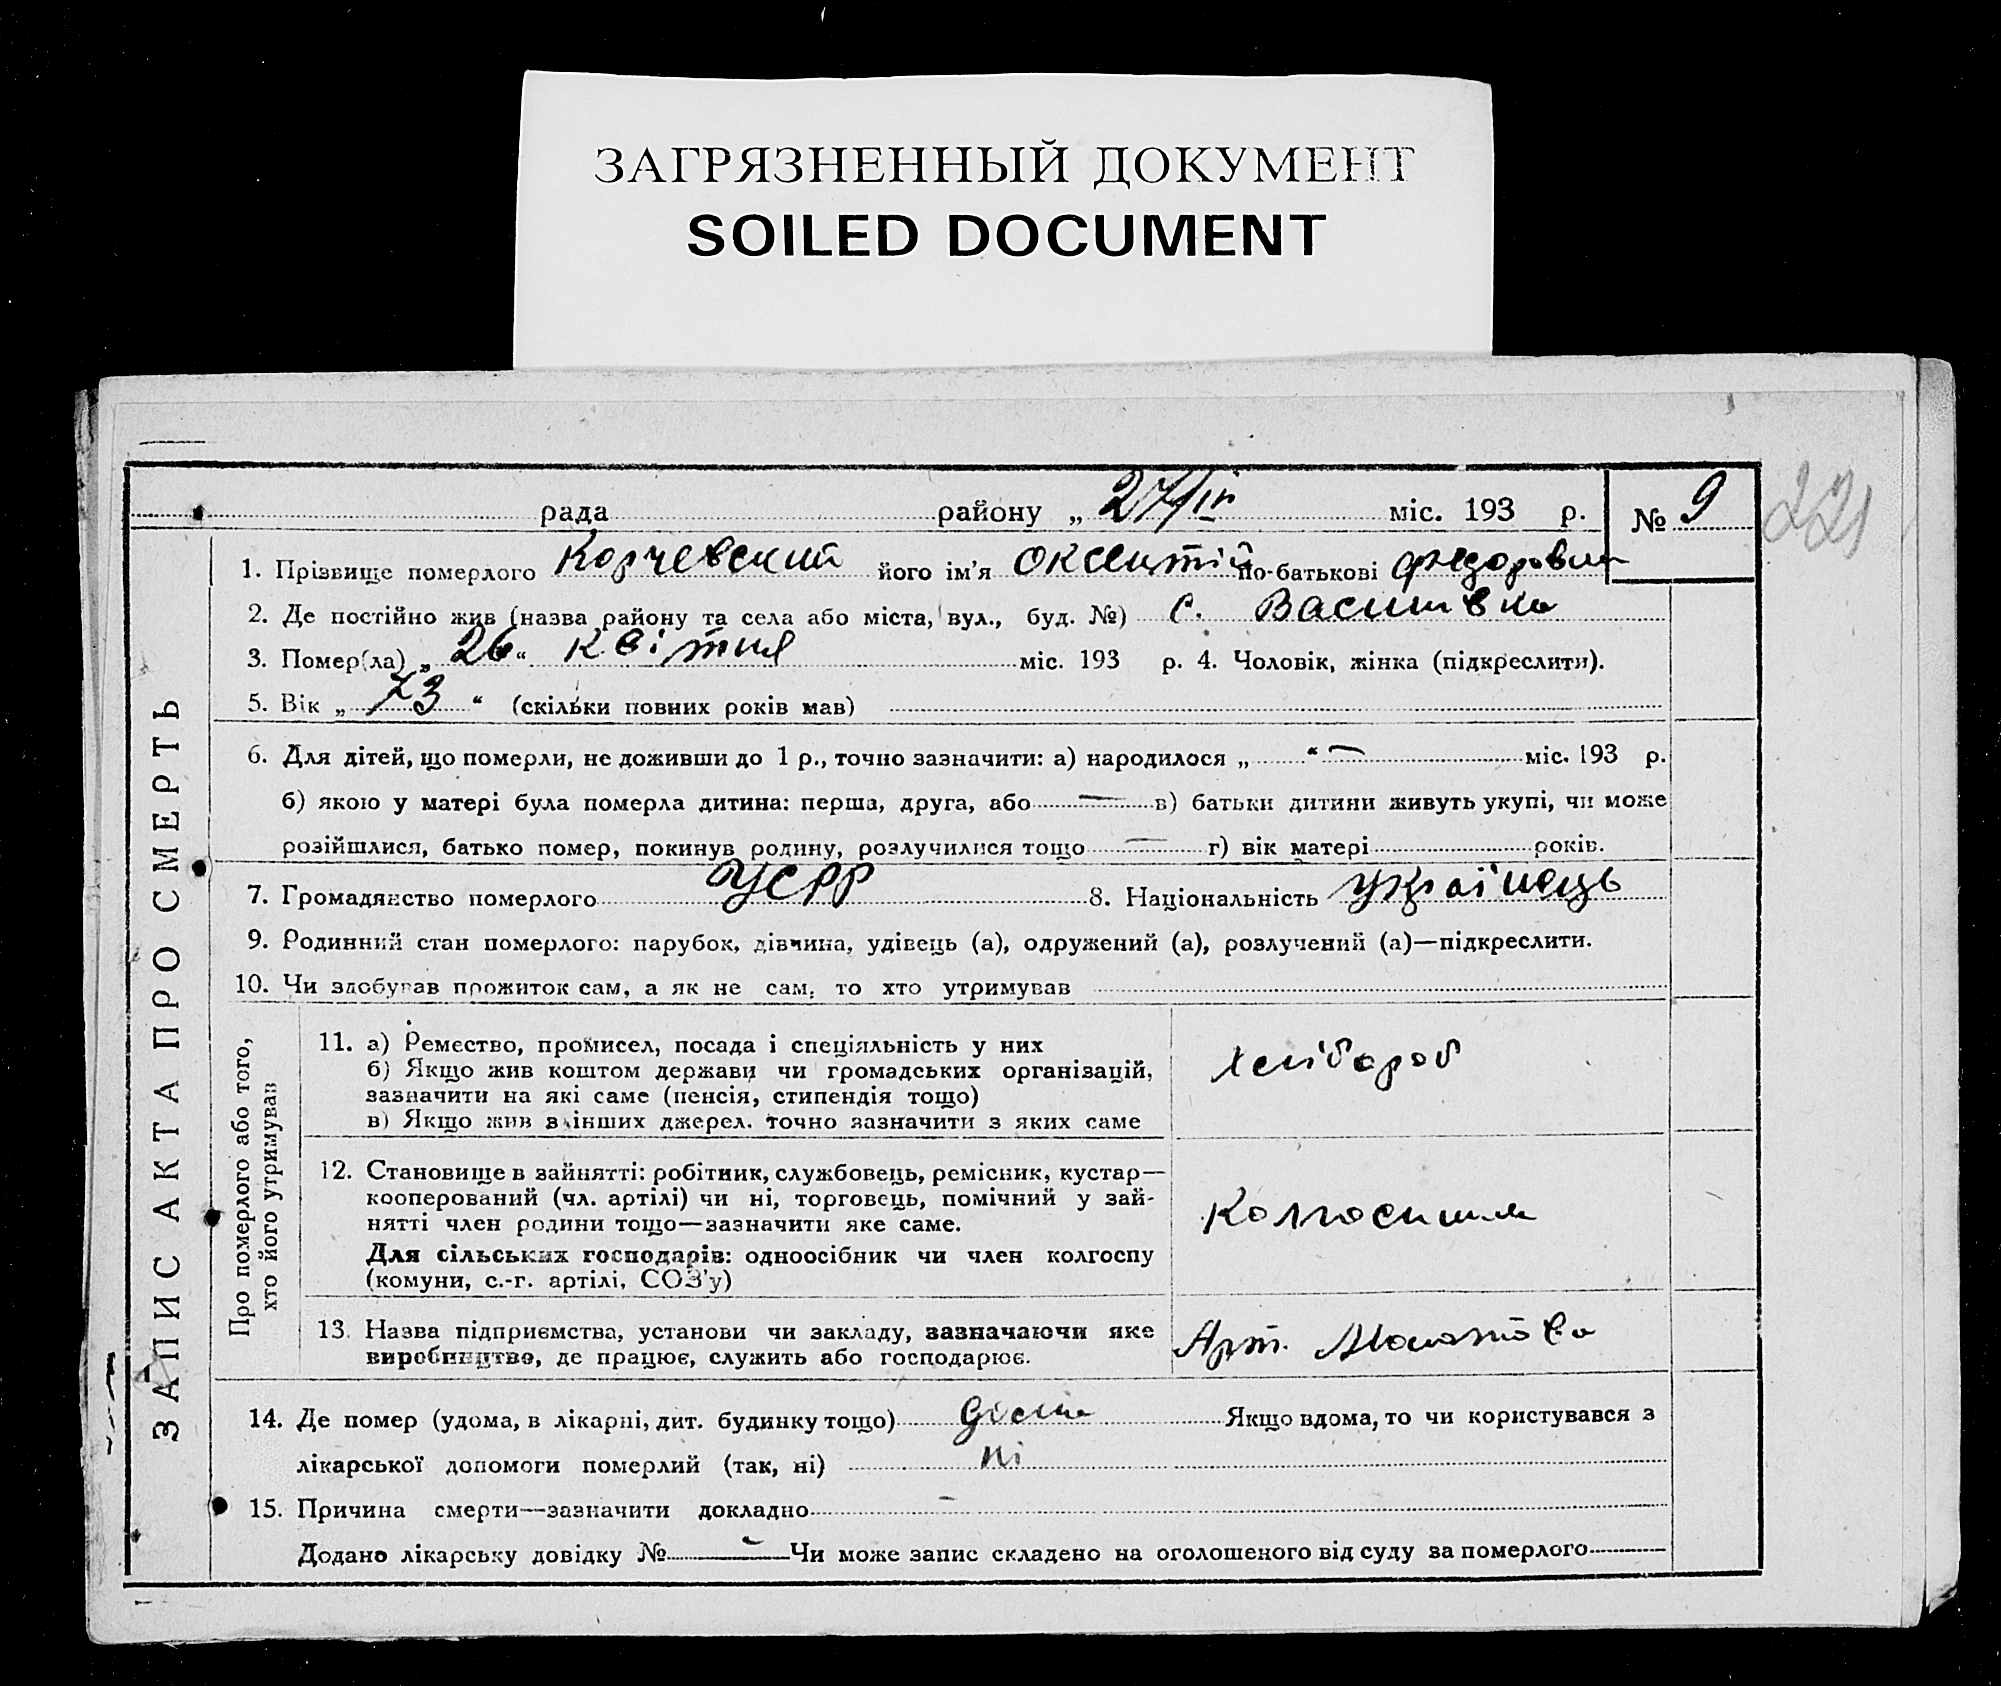 ЗАГРЯЗНЕННЫЙ ДОКУМЕНТ
SOILED DOCUMENT
221
рада району „ 27/IV міс. 193 р. № 9
1. Прізвище померлого Корчевский його ім’я Оксентій по-батькові Федорович
2. Де постійно жив (назва району та села або міста, вул., буд. №) с. Василівка
3. Помер(ла) „ 26 “ квітня міс. 193 р. 4. Чоловік, жінка (підкреслити).
5. Вік „ 73 “ (скільки повних років мав)
6. Для дітей, що померли, не доживши до 1 р., точно зазначити: а) народилося „ “ — міс. 193 р.
б) якою у матері була померла дитина: перша, друга, або — в) батьки дитини живуть укупі, чи може
розійшлися, батько помер, покинув родину, розлучилися тощо — г) вік матері років.
7. Громадянство померлого УСРР 8. Національність українець
9. Родинний стан померлого: парубок, дівчина, удівець (а), одружений (а), розлучений (а)—підкреслити.
10. Чи здобував прожиток сам, а як не сам, то хто утримував
ЗАПИС АКТА ПРО СМЕРТЬ
Про померлого або того,
хто його утримував
11. а) Ремество, промисел, посада і спеціяльність у них
б) Якщо жив коштом держави чи громадських організацій,
зазначити на які саме (пенсія, стипендія тощо)
в) Якщо жив з інших джерел, точно зазначити з яких саме
хлібороб
12. Становище в зайнятті: робітник, службовець, ремісник, кустар—
кооперований (чл. артілі) чи ні, торговець, помічний у зай-
нятті член родини тощо—зазначити яке саме.
Для сільських господарів: одноосібник чи член колгоспу
(комуни, с.-г. артілі, СОЗ’у)
13. Назва підприємства, установи чи закладу, зазначаючи яке
виробництво, де працює, служить або господарює.
Арт.
14. Де помер (удома, в лікарні, дит. будинку тощо) Якщо вдома, то чи користувався з
лікарської допомоги померлий (так, ні) ні
15. Причина смерти—зазначити докладно —
Додано лікарську довідку № — Чи може запис складено на оголошеного від суду за померлого